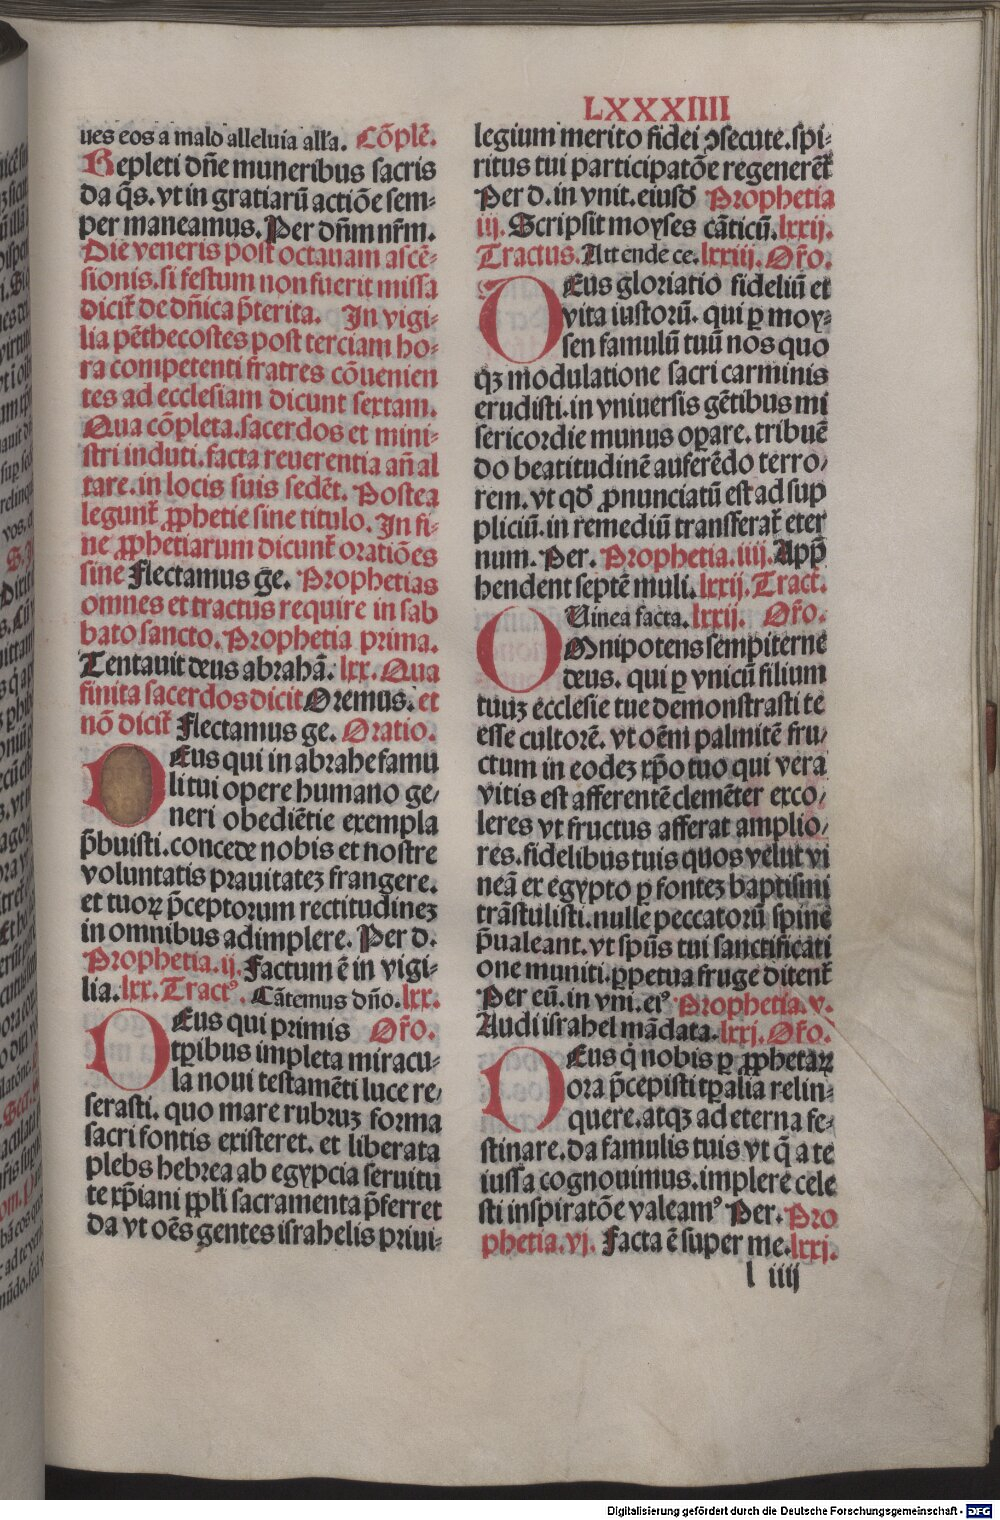 LXXXIIII
ues eos a malo alleluia all'a. Cõplẽ.
Repleti dñe muneribus sacris
da q̃s. vt in gratiarũ actiõe sem-
per maneamus. Per dñm nr̃m.
Die veneris post octauam ascẽ-
sionis. si festum non fuerit missa
dicit̃ de dñica p̃terita. In vigi-
lia pẽthecostes post terciam ho-
ra competenti fratres cõuenien
tes ad ecclesiam dicunt sextam.
Qua cõpleta. sacerdos et mini-
stri induti. facta reuerentia añ al
tare. in locis suis sedẽt. Postea
legunt̃ ꝓphetie sine titulo. In fi-
ne ꝓphetiarum dicunt̃ oratiões
sine Flectamus gẽ. Prophetias
omnes et tractus require in sab
bato sancto. Prophetia prima.
Tentauit deus abrahã. lxx. Qua
finita sacerdos dicit Oremus. et
nõ dicit̃ Flectamus ge. Oratio.
DEus qui in abrahe famu
li tui opere humano ge-
neri obediẽtie exempla
p̃buisti. concede nobis et nostre
voluntatis prauitateʒ frangere.
et tuoꝝ p̃ceptorum rectitudineʒ
in omnibus adimplere. Per d.
Prophetia. ij. Factum ẽ in vigi-
lia. lxx. Tractꝰ. Cãtemus dño. lxx.
DEus qui primis Or̃o.
tꝑibus impleta miracu-
la noui testamẽti luce re-
serasti. quo mare rubruʒ forma
sacri fontis existeret. et liberata
plebs hebrea ab egypcia seruitu
te xp̃iani ppl'i sacramenta p̃ferret
da vt oẽs gentes israhelis priui-
legium merito fidei ꝯsecute. spi-
ritus tui participatõe regenerẽt̃
Per d. in vnit. eiusd̃ Prophetia
iij. Scripsit moyses cãticũ. lxxij.
Tractus. Attende ce. lxxiij. Or̃o.
DEus gloriatio fideliũ et
vita iustorũ. qui ꝑ moy-
sen famulũ tuũ nos quo
qʒ modulatione sacri carminis
erudisti. in vniuersis gẽtibus mi
sericordie munus oꝑare. tribuẽ
do beatitudinẽ auferẽdo terro-
rem. vt qd̃ ꝓnunciatũ est ad sup
pliciũ. in remediũ transferat̃ eter
num. Per. Prophetia. iiij. App̃
hendent septẽ muli. lxxij. Tract̃.
Vinea facta. lxxij. Or̃o.
OMnipotens sempiterne
deus. qui ꝑ vnicũ filium
tuuʒ ecclesie tue demonstrasti te
esse cultorẽ. vt oẽm palmitẽ fru-
ctum in eodeʒ xp̃o tuo qui vera
vitis est afferentẽ clemẽter exco-
leres vt fructus afferat amplio-
res. fidelibus tuis quos velut vi
neã ex egypto ꝑ fonteʒ baptismi
trãstulisti. nulle peccatorũ spinẽ
p̃ualeant. vt sp̃ũs tui sanctificati
one muniti. ꝑpetua fruge ditent̃
Per eũ. in vni. eiꝰ Prophetia. v.
Audi israhel mãdata. lxxj. Or̃o.
DEus q̇ nobis ꝑ ꝓphetaꝝ
ora p̃cepisti tꝑalia relin-
quere. atqʒ ad eterna fe-
stinare. da famulis tuis vt q̃ a te
iussa cognouimus. implere cele
sti inspiratõe valeamꝰ Per. Pro
phetia. vj. Facta ẽ super me. lxxj.
l iiij
Digitalisierung gefördert durch die Deutsche Forschungsgemeinschaft - DFG